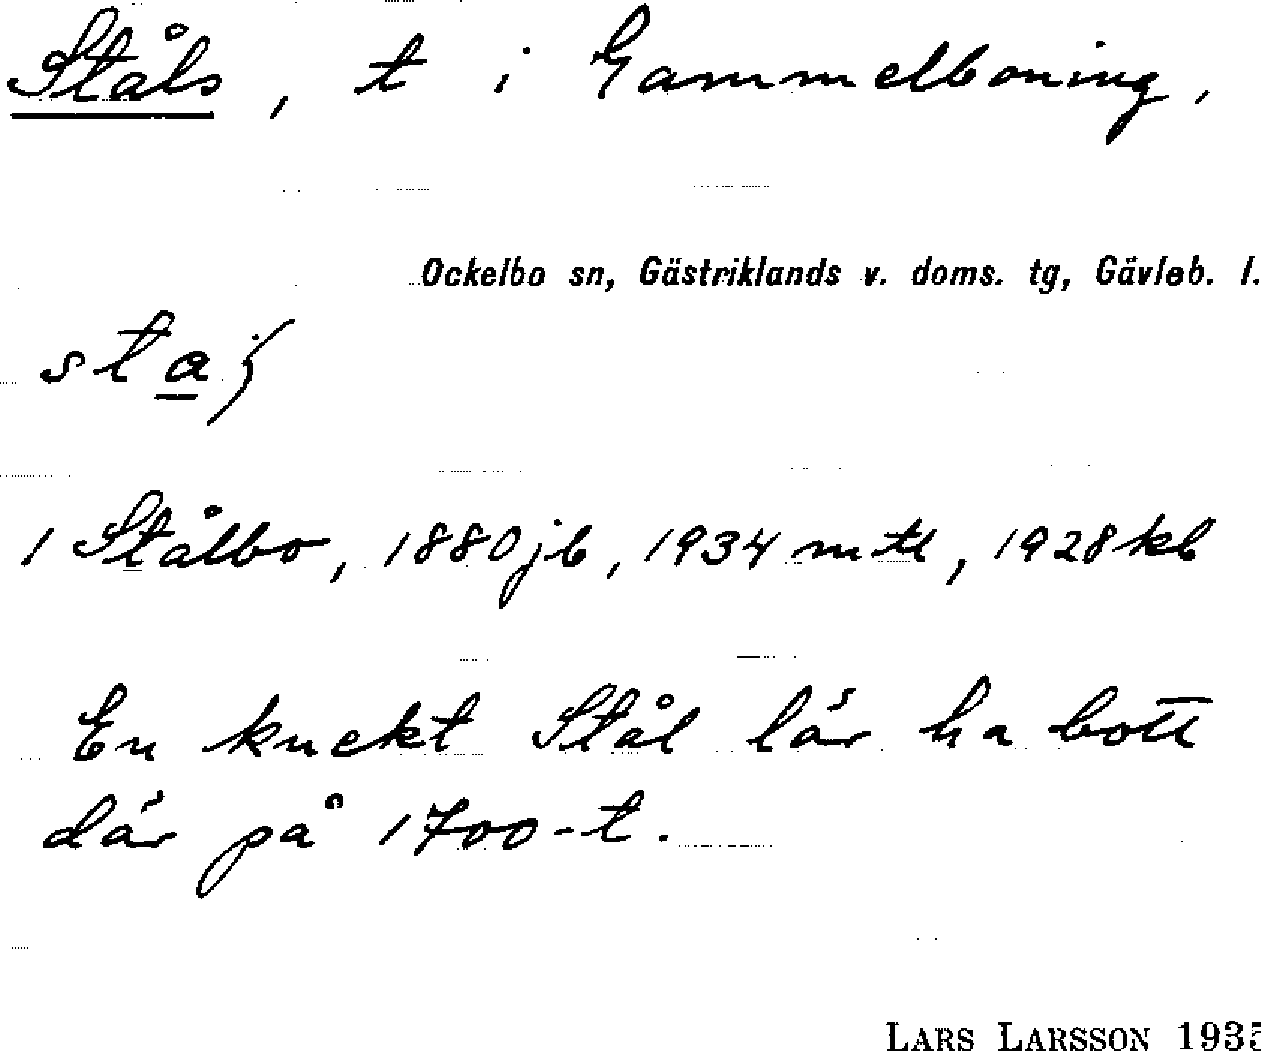 Ståls, t i Gammelboning,
Ockelbo sn, Gästriklands v. doms. tg, Gävleb. l.
1 Stålbo, 1880 jb, 1934 mtl, 1928 kb
En knekt Stål lär ha bott
där på 1700-t.
LARS LARSSON 1935